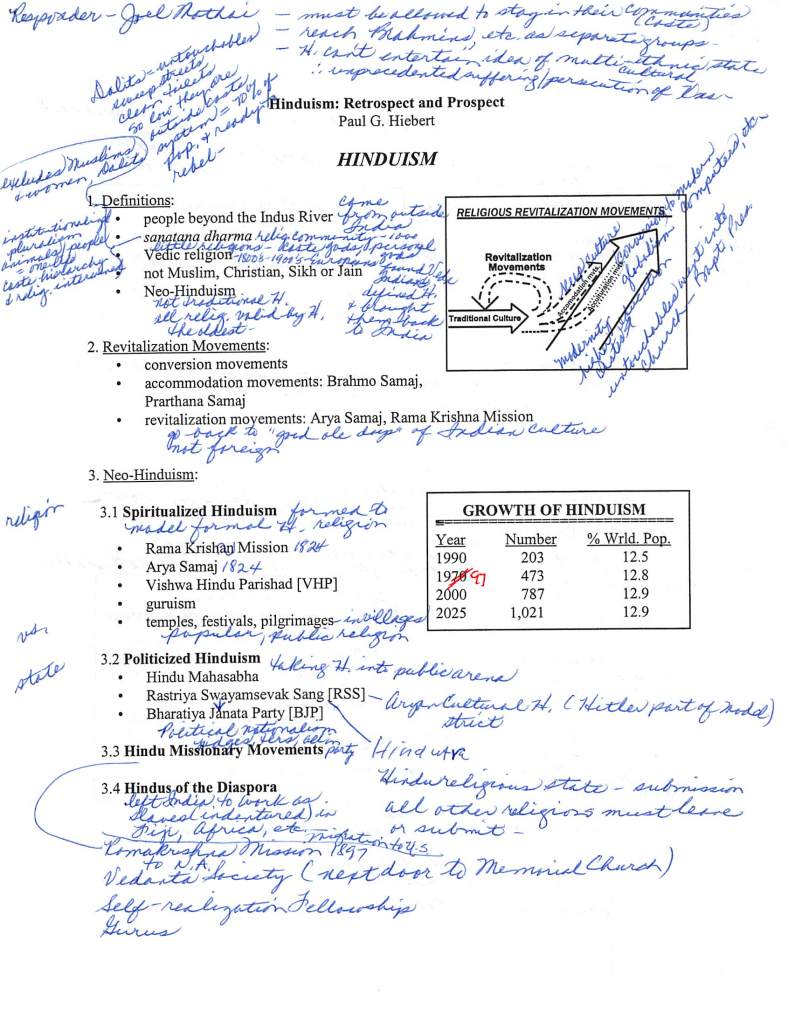 Responder - Joel Mathai
- must be allowed to stay in their communities
(caste)
- reach Brahmins, etc. as separate groups -
- H. can't entertain idea of multi-ethnic state
cultural
∴ unprecedented suffering/persecution of
Dalits = untouchables
sweep streets
clean toilets
so low they are
outside caste
system = 70% of
pop. & ready to
rebel -
excludes Muslims
& women, Dalits
Hinduism: Retrospect and Prospect
Paul G. Hiebert
HINDUISM
1. Definitions:
• people beyond the Indus River
come
from outside
India
• sanatana dharma relig. communities - 1000
little religions - caste gods, & personal
gods
• Vedic religion - 1800's-1900's - Europeans
found
• not Muslim, Christian, Sikh or Jain
• Neo-Hinduism
defined H.
& brought
them back
to India
not traditional H.
all relig. valid by H.
the oldest -
institutionalized
pluralism
animals/people
= one life
caste hierarchy
& relig. intertwined
RELIGIOUS REVITALIZATION MOVEMENTS
Revitalization
Movements
Traditional Culture
New Culture
Conversion to modern
globalism computers, etc -
"modernity
untouchables went into
Church - Bapt., Pres.
2. Revitalization Movements:
• conversion movements
• accommodation movements: Brahmo Samaj,
Prarthana Samaj
• revitalization movements: Arya Samaj, Rama Krishna Mission
go back to "good ole days" of Indian culture
not foreign
3. Neo-Hinduism:
religion
vs.
state
3.1 Spiritualized Hinduism formed to
model formal H. religion
• Rama Krishan Mission 1824
• Arya Samaj 1824
• Vishwa Hindu Parishad [VHP]
• guruism
• temples, festivals, pilgrimages - in villages
popular, public religion
GROWTH OF HINDUISM
Year Number % Wrld. Pop.
1990 203 12.5
1970 97 473 12.8
2000 787 12.9
2025 1,021 12.9
3.2 Politicized Hinduism taking H. into public arena
• Hindu Mahasabha
• Rastriya Swayamsevak Sang [RSS] - Aryan Cultural H. (Hitler part of model)
strict
• Bharatiya Janata Party [BJP]
Political nationalism
party
3.3 Hindu Missionary Movements
Hindutva
Hindu religious state - submission
all other religions must leave
or submit -
3.4 Hindus of the Diaspora
left India to work as
slaves (indentured) in
Fiji, Africa, etc. - migration to U.S
Ramakrishna Mission 1897
to N.A.
Vedanta Society (next door to Memorial Church)
Self-realization Fellowship
Gurus